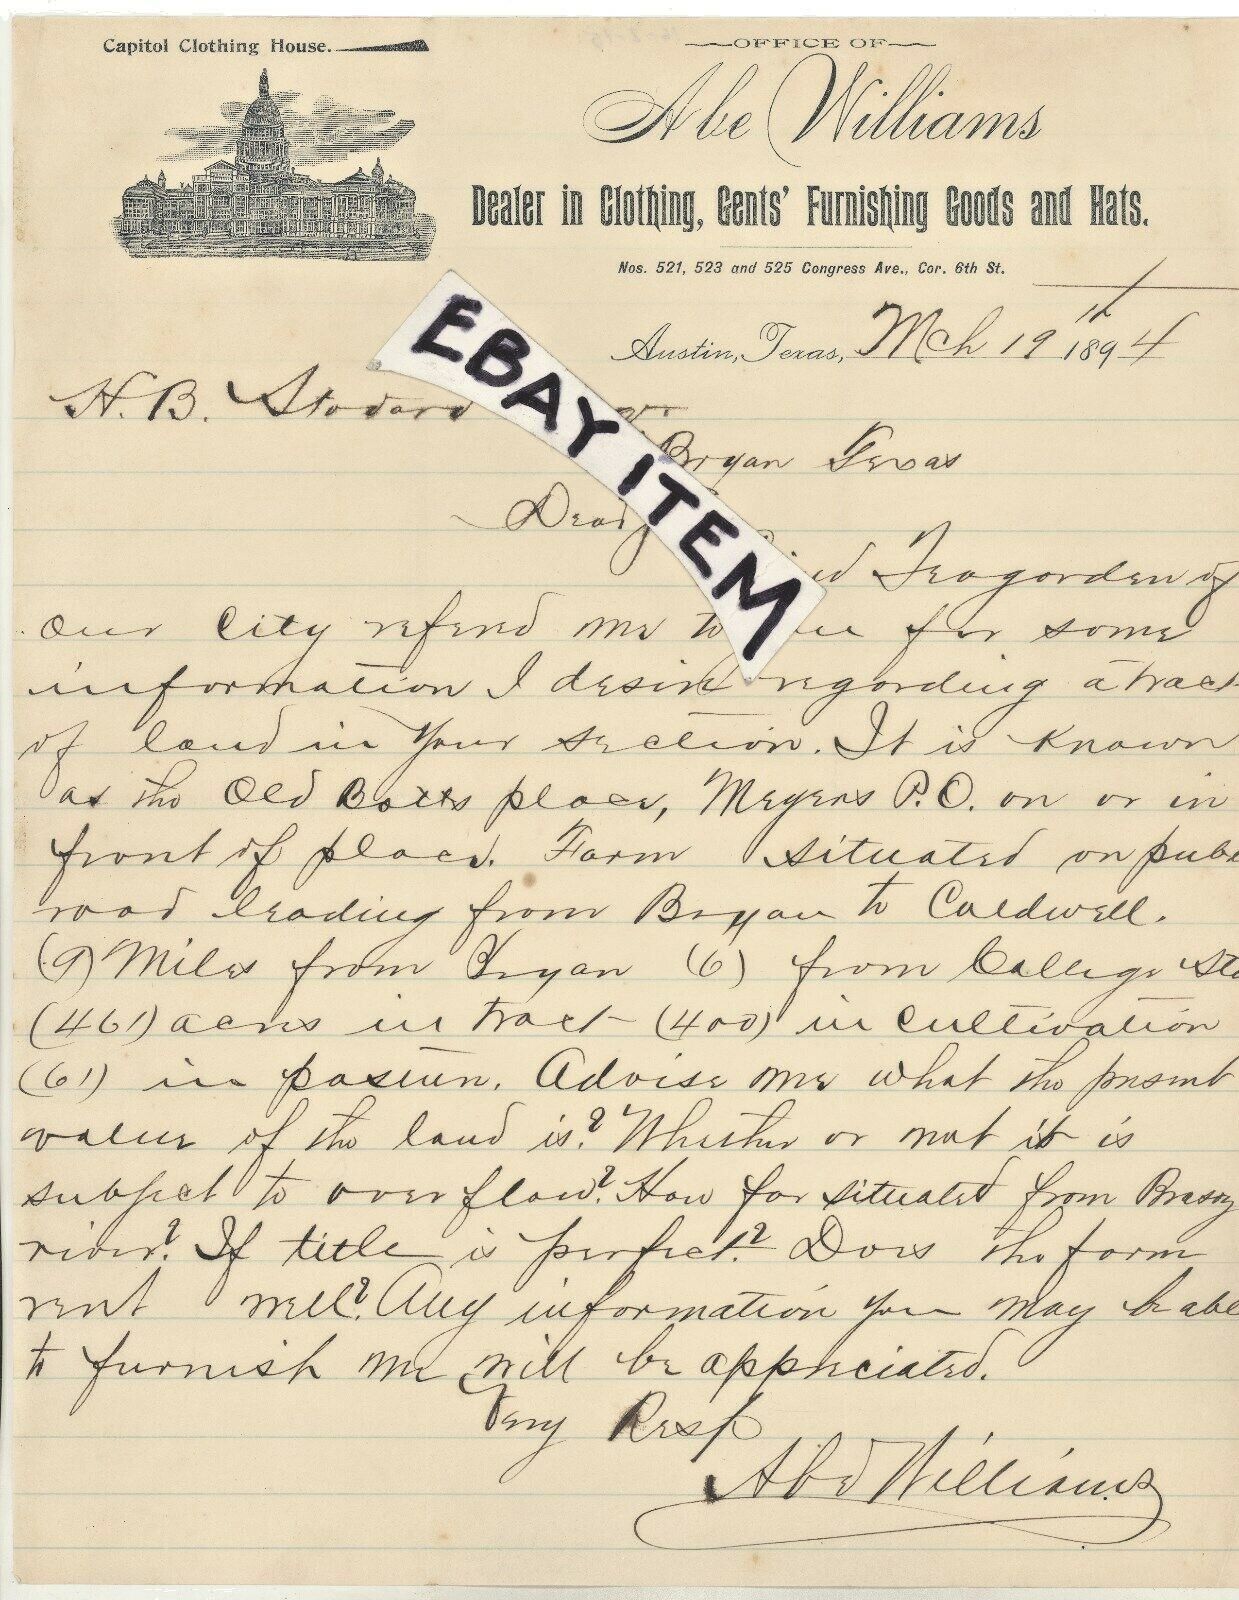 Capitol Clothing House.
OFFICE OF
Abe Williams
Dealer in Clothing, Gents' Furnishing Goods and Hats.
Nos. 521, 523 and 525 Congress Ave., Cor. 6th St.
Austin, Texas, Mch 19th 1894
H. B. Stodard
Bryan Texas
Dear
EBAY ITEM
Teagarden of
our City referd me to for some
information I desire regarding a tract
of land in your section. It is known
as the Old Botts place, Meyers P.O. on or in
front of place. Farm situated on pub
road leading from Bryan to Caldwell.
(9) Miles from Bryan (6) from College Sta
(461) acres in tract (400) in cultivation
(61) in pasture. Advise me what the present
value of the land is? Whether or not it is
subject to over flow? How far situated from Brasos
river? If title is perfect? Does the farm
rent well? Any information you may be able
to furnish me will be appreciated.
Very Resp
Abe Williams